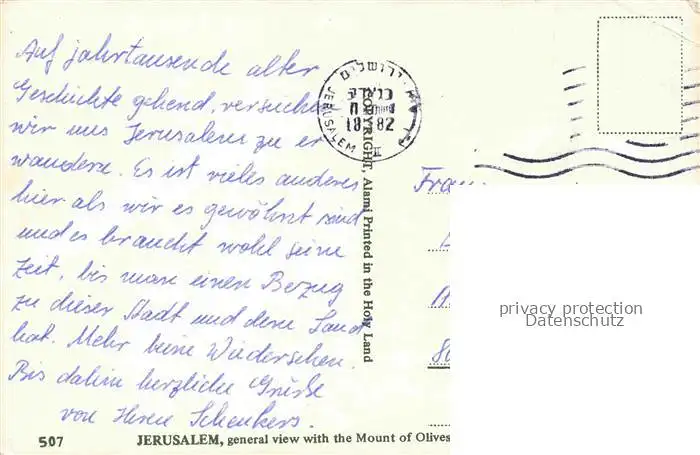 Auf jahrtausende alter
Geschichte gehend, versuchen
wir uns Jerusalem zu er
wandern. Es ist vieles anderes
hier als wir es gewöhnt sind
und es braucht wohl seine
Zeit, bis man einen Bezug
zu dieser Stadt und dem Land
hat. Mehr beim Wiedersehen.
Bis dahin herzliche Grüße
von Ihren Schenkers.
507
JERUSALEM, general view with the Mount of Olives
COPYRIGHT, Alami Printed in the Holy Land
ירושלים
JERUSALEM
Frau
privacy protection
Datenschutz